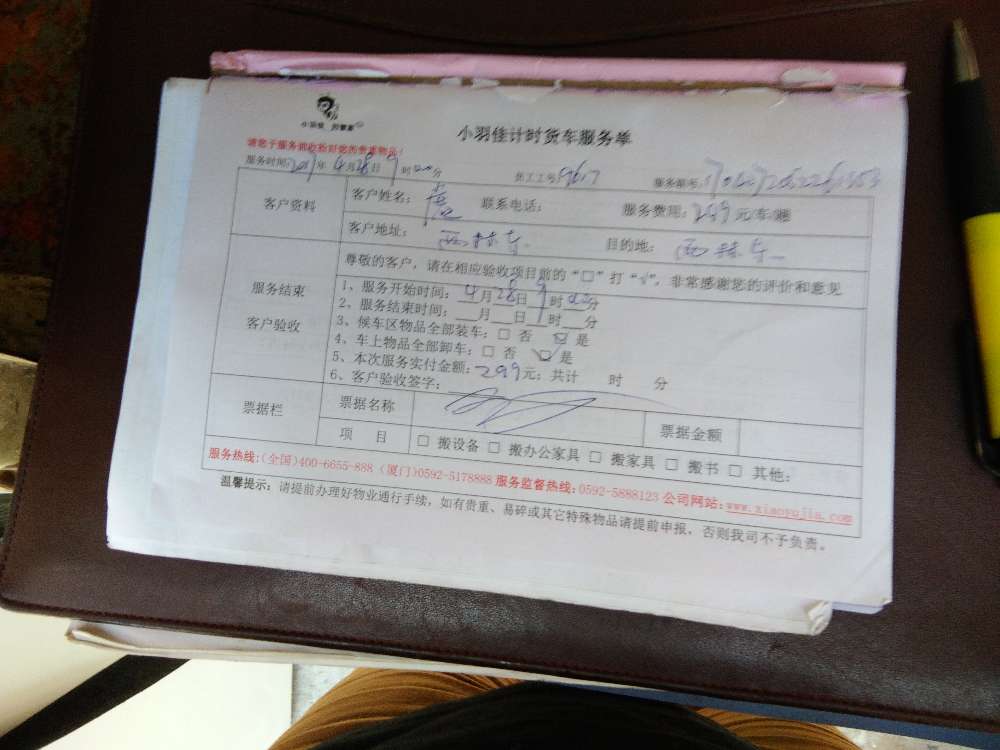 小羽佳计时货车服务单
请您于服务前收拾好您的贵重物品!
服务时间: 2017年 4月28日 9时00分 员工工号: 服务单号:
客户资料 客户姓名: 联系电话: 服务费用: 299元/车/趟
客户地址: 西林东 目的地: 西林东
服务结束
客户验收
尊敬的客户, 请在相应验收项目前的“□”打“√”, 非常感谢您的评价和意见
1、服务开始时间: 4月28日9时00分
2、服务结束时间: 月 日 时 分
3、候车区物品全部装车: □ 否 ☑ 是
4、车上物品全部卸车: □ 否 ☑ 是
5、本次服务实付金额: 299元; 共计 时 分
6、客户验收签字:
票据栏 票据名称 票据金额
项 目 □ 搬设备 □ 搬办公家具 □ 搬家具 □ 搬书 □ 其他:
服务热线:(全国)400-6655-888 (厦门)0592-5178888 服务监督热线:0592-5888123 公司网站:www.xiaoyujia.com
温馨提示: 请提前办理好物业通行手续, 如有贵重、易碎或其它特殊物品请提前申报, 否则我司不予负责。